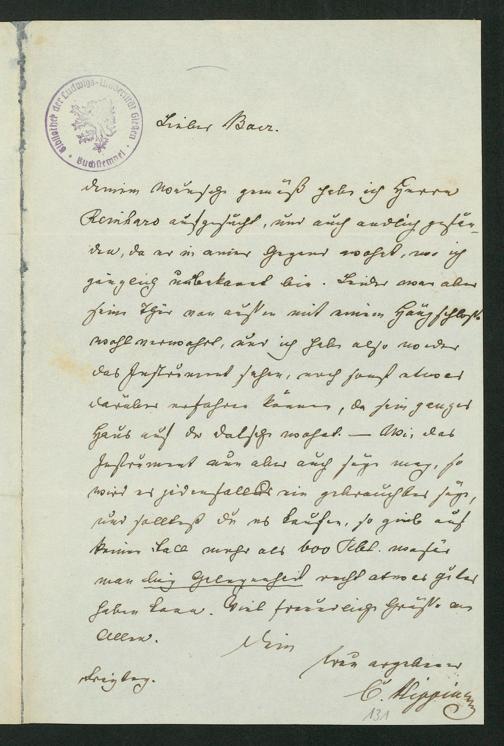 Bibliothek der Ludwigs-Universität Gießen
Buchstempel
Lieber Baer.
deinem Wunsche gemäß habe ich Herrn
Reinhard aufgesucht, und auch endlich gefun-
den, da er in einer Gegend wohnt, wo ich
gänzlich unbekannt bin. Leider war aber
seine Thür von außen mit einem Hängschloß
wohl verwahrt, und ich habe also weder
das Instrument sehen, noch sonst etwas
darüber erfahren können, da sein ganzes
Haus auf der wohnt. — Wie das
Instrument nun aber auch sein mag, so
wird es jedenfalls ein gebrauchtes sein,
und solltest du es kaufen, so gieb auf
keinen Fall mehr als 600 Rbl. wofür
man bei Gelegenheit recht etwas gutes
haben kann. Viel freundliche Grüße an
Allen.
Dein
treu ergebener
Freytag.
C.
131